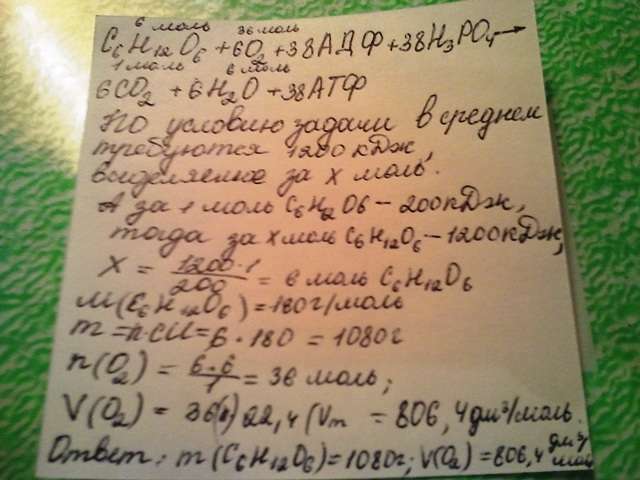 6 моль 36 моль
C₆H₁₂O₆ + 6O₂ + 38АДФ + 38H₃PO₄ →
1 моль 6 моль
6CO₂ + 6H₂O + 38АТФ
По условию задачи в среднем
требуются 1200 кДж,
выделяемое за x моль.
А за 1 моль C₆H₂O6 – 200кДж,
тогда за x моль C₆H₁₂O₆ – 1200кДж,
X = 1200·1/200 = 6 моль C₆H₁₂O₆
M(C₆H₁₂O₆) = 180г/моль
m = n·M = 6 · 180 = 1080г
n(O₂) = 6·6/1 = 36 моль;
V(O₂) = 36(n) 22,4 (Vm = 806,4 дм³/моль.
Ответ: m(C₆H₁₂O₆) = 1080г; V(O₂) = 806,4 дм³/моль